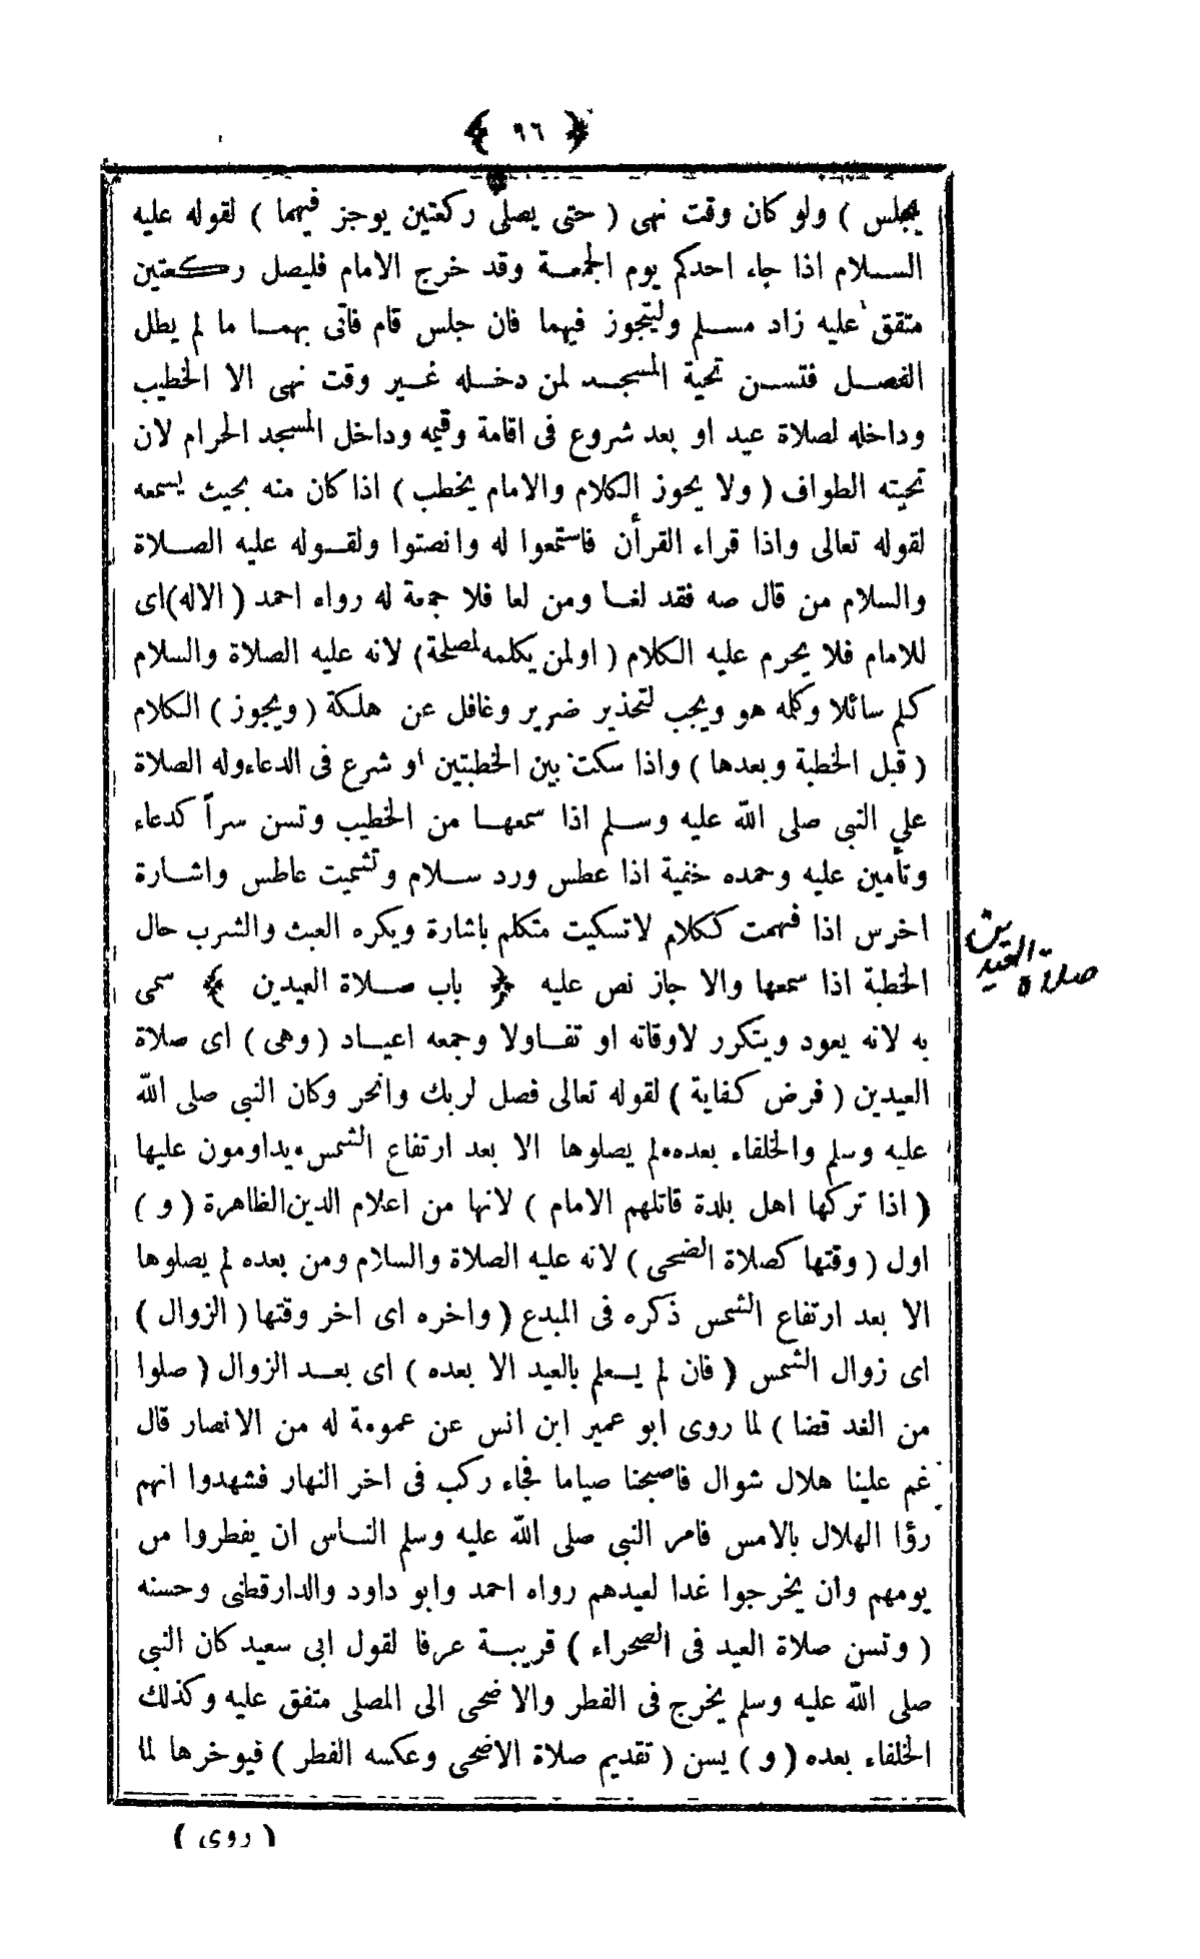 ﴿ ٩٦ ﴾
يجلس ) ولو كان وقت نهى ( حتى يصلى ركعتين يوجز فيهما ) لقوله عليه
السلام اذا جاء احدكم يوم الجمعة وقد خرج الامام فليصل ركعتين
متفق عليه زاد مسلم وليتجوز فيهما فان جلس قام فأتى بهما ما لم يطل
الفصل فتسن تحية المسجد لمن دخله غير وقت نهى الا الخطيب
وداخله لصلاة عيد او بعد شروع فى اقامة وقيمه وداخل المسجد الحرام لان
تحيته الطواف ( ولا يجوز الكلام والامام يخطب ) اذا كان منه بحيث يسمعه
لقوله تعالى واذا قراء القرأن فاستمعوا له وانصتوا ولقوله عليه الصلاة
والسلام من قال صه فقد لغا ومن لغا فلا جمعة له رواه احمد ( الاله)اى
للامام فلا يحرم عليه الكلام ( اولمن يكلمه لمصلحة) لانه عليه الصلاة والسلام
كلم سائلا وكلمه هو ويجب لتحذير ضرير وغافل عن هلكة ( ويجوز ) الكلام
( قبل الخطبة وبعدها ) واذا سكت بين الخطبتين او شرع فى الدعاءوله الصلاة
على النبى صلى الله عليه وسلم اذا سمعها من الخطيب وتسن سراً كدعاء
وتأمين عليه وحمده خفية اذا عطس ورد سلام وتشميت عاطس واشارة
اخرس اذا فهمت ككلام لاتسكيت متكلم باشارة ويكره العبث والشرب حال
الخطبة اذا سمعها والا جاز نص عليه ﴿ باب صلاة العيدين ﴾ سمى
صلاة العيدين
به لانه يعود ويتكرر لاوقاته او تفاولا وجمعه اعياد ( وهى ) اى صلاة
العيدين ( فرض كفاية ) لقوله تعالى فصل لربك وانحر وكان النبى صلى الله
عليه وسلم والخلفاء بعده لم يصلوها الا بعد ارتفاع الشمس يداومون عليها
( اذا تركها اهل بلدة قاتلهم الامام ) لانها من اعلام الدين الظاهرة ( و )
اول ( وقتها كصلاة الضحى ) لانه عليه الصلاة والسلام ومن بعده لم يصلوها
الا بعد ارتفاع الشمس ذكره فى المبدع ( واخره اى اخر وقتها ( الزوال )
اى زوال الشمس ( فان لم يعلم بالعيد الا بعده ) اى بعد الزوال ( صلوا
من الغد قضا ) لما روى ابو عمير ابن انس عن عمومة له من الانصار قال
غم علينا هلال شوال فاصبحنا صياما فجاء ركب فى اخر النهار فشهدوا انهم
رؤا الهلال بالامس فامر النبى صلى الله عليه وسلم الناس ان يفطروا من
يومهم وان يخرجوا غدا لعيدهم رواه احمد وابو داود والدارقطنى وحسنه
( وتسن صلاة العيد فى الصحراء ) قريبة عرفا لقول ابى سعيد كان النبى
صلى الله عليه وسلم يخرج فى الفطر والاضحى الى المصلى متفق عليه وكذلك
الخلفاء بعده ( و ) يسن ( تقديم صلاة الاضحى وعكسه الفطر ) فيوخرها لما
( روى )